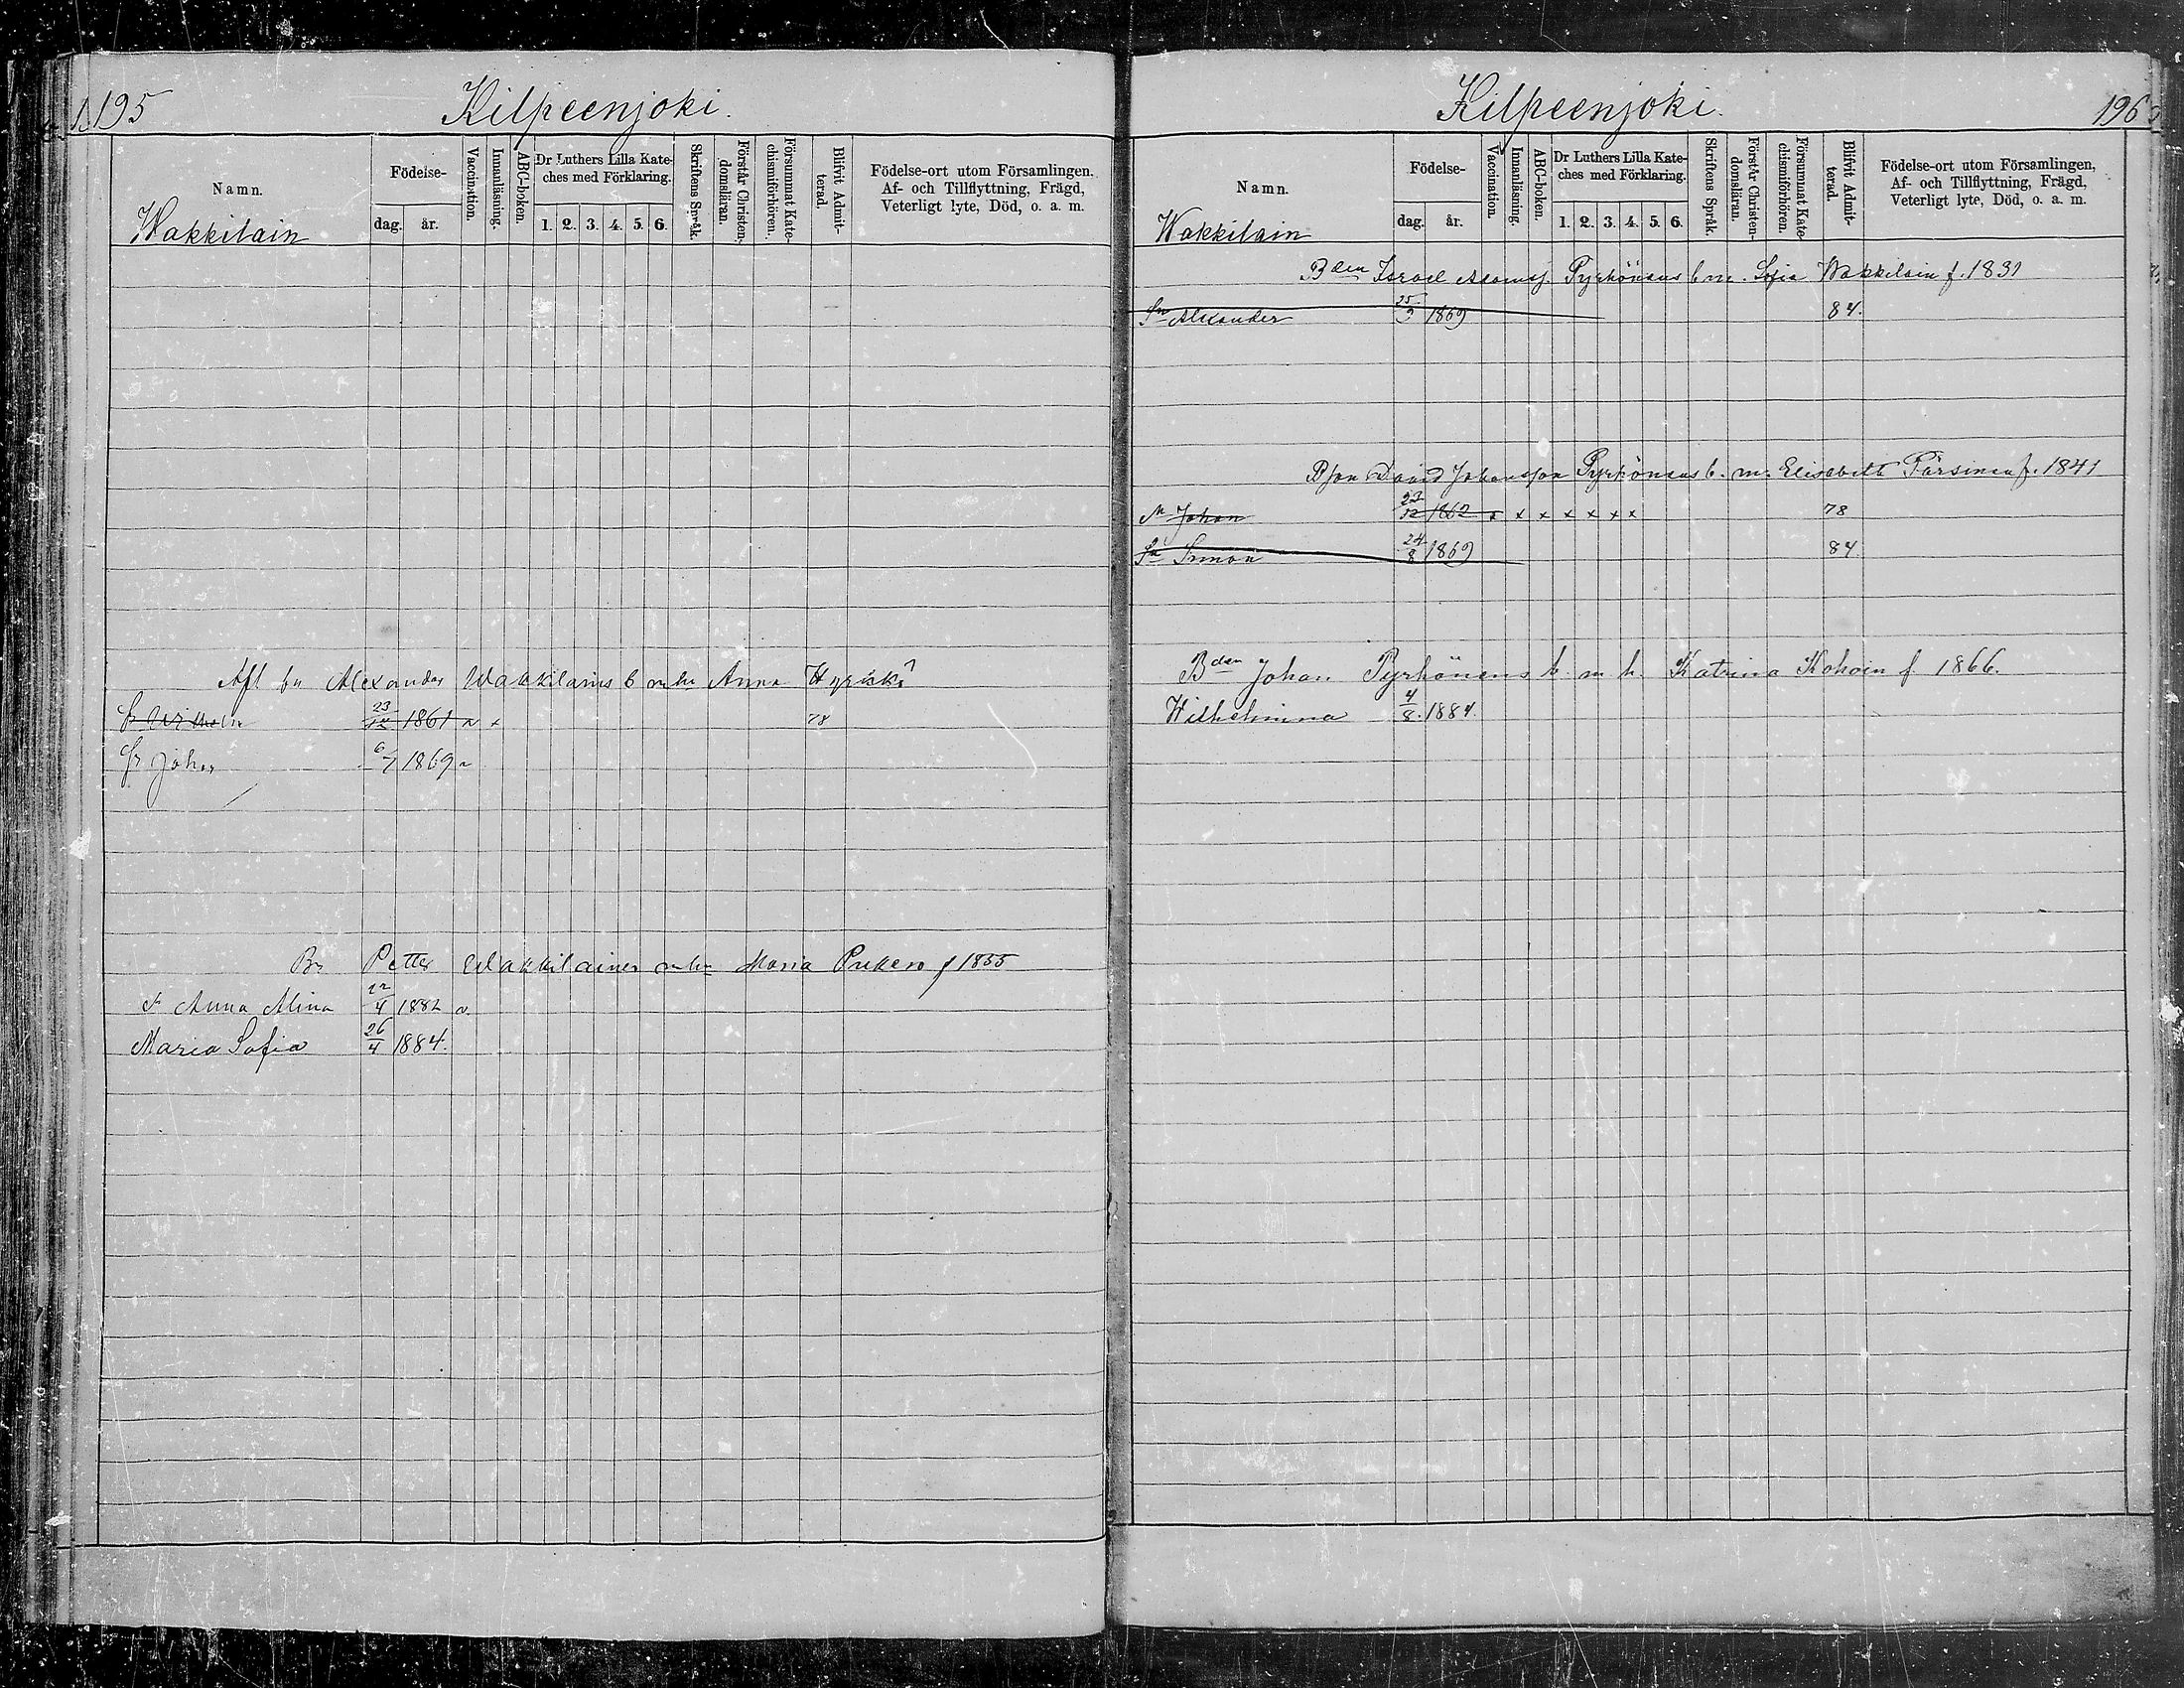 195
Kilpeenjoki.
Namn.
Födelse-
dag.
år.
Vaccination.
Innanläsning.
ABC-boken.
Dr Luthers Lilla Kate-
ches med Förklaring.
1. 2. 3. 4. 5. 6.
Skriftens Språk.
Förstår Christen-
domsläran.
Försummat Kate-
chismiförhören.
Blifvit Admit-
terad.
Födelse-ort utom Församlingen.
Af- och Tillflyttning, Frägd,
Veterligt lyte, Död, o. a. m.
Wakkilain
Afl bn Alexander Wakkilains b m hu Anna
Sn Wilhelm 23/12 1861 v x 78
Sn Johan 6/7 1869 v
Bn Petter Wakkilainen m hu Maria f 1855
Anna Alina 12/4 1882 v
Maria Sofia 26/4 1884.
Kilpeenjoki.
196
Namn.
Födelse-
dag.
år.
Vaccination.
Innanläsning.
ABC-boken.
Dr Luthers Lilla Kate-
ches med Förklaring.
1. 2. 3. 4. 5. 6.
Skriftens Språk.
Förstår Christen-
domsläran.
Försummat Kate-
chismiförhören.
Blifvit Admit-
terad.
Födelse-ort utom Församlingen,
Af- och Tillflyttning, Frägd,
Veterligt lyte, Död, o. a. m.
Wakkilain
Bden Israel Adamsf. Pyrhönens b m. Sofia Wakkilain f. 1831
Sn Alexander 25/9 1869 84.
David Johansson Pyrhönens b. m. Elisabeth Pärsinen f. 1841
Johan 23/12 1862 x x x x x x x 78
Sn Simon 24/8 1869 84
Bden Johan Pyrhönens b. m. h. Katrina Kohoin f. 1866.
Wilhelmina 4/8. 1884.